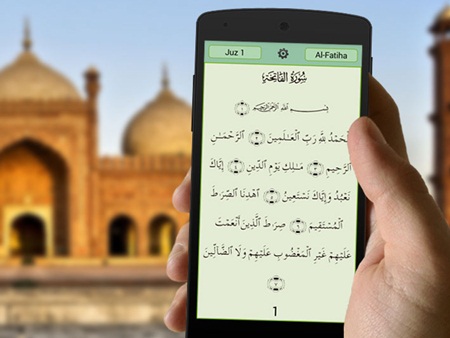 Juz 1 Al-Fatiha
سُورَةُ الفَاتِحَة
بِسْمِ ٱللَّهِ ٱلرَّحْمَٰنِ ٱلرَّحِيمِ ١
ٱلْحَمْدُ لِلَّهِ رَبِّ ٱلْعَٰلَمِينَ ٢ ٱلرَّحْمَٰنِ
ٱلرَّحِيمِ ٣ مَٰلِكِ يَوْمِ ٱلدِّينِ ٤ إِيَّاكَ
نَعْبُدُ وَإِيَّاكَ نَسْتَعِينُ ٥ ٱهْدِنَا ٱلصِّرَٰطَ
ٱلْمُسْتَقِيمَ ٦ صِرَٰطَ ٱلَّذِينَ أَنْعَمْتَ
عَلَيْهِمْ غَيْرِ ٱلْمَغْضُوبِ عَلَيْهِمْ وَلَا ٱلضَّآلِّينَ
٧
1